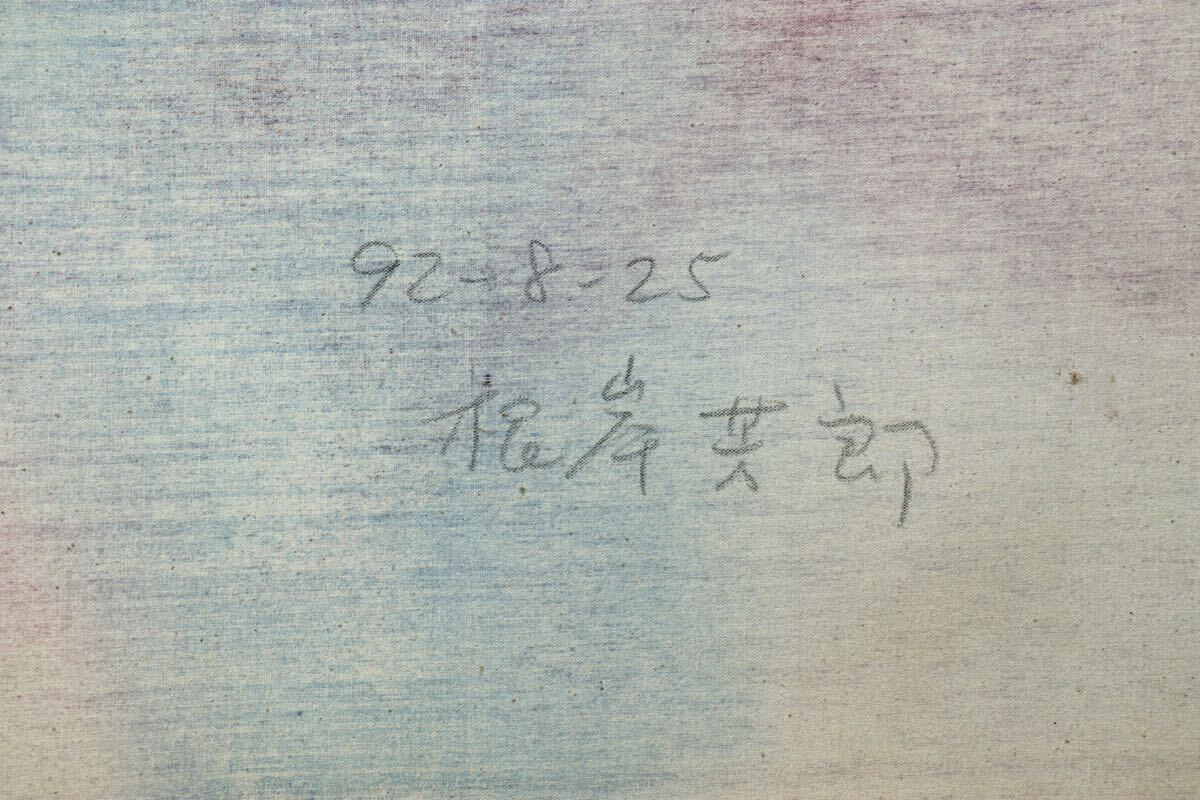 92-8-25
根岸芳郎